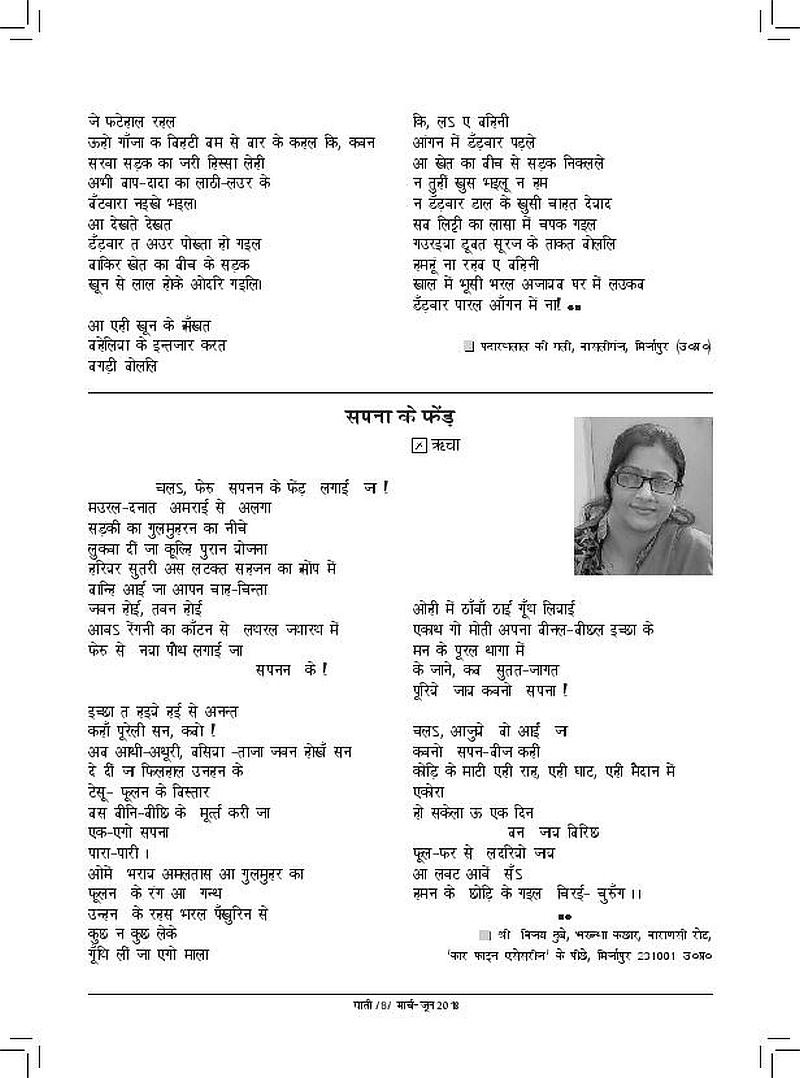 जे फटेहाल रहल
ऊहो गाँजा क चिहटी बम से बार के कहल कि, कवन
सरवा सड़क का जरी हिस्सा लेही
अभी बाप-दादा का लाठी-लउर के
बँटवारा नइखे भइल।
आ देखते देखत
डँड़वार त अउर पोख्ता हो गइल
बाकिर खेत का बीच के सड़क
खून से लाल होके ओदरि गइलि।

आ एही खून के भँखत
बहेलिया के इन्तजार करत
बगड़ी बोललि
कि, लऽ ए बहिनी
आंगन में डँड़वार पड़ले
आ खेत का बीच से सड़क निकलले
न तुहीं खुस भइलू न हम
न डँड़वार डाल के खुसी चाहत देयाद
सब लिट्टी का लासा में चपक गइल
गउरइया डूबत सूरज के ताकत बोललि
हमहूं ना रहब ए बहिनी
खाल में भूसी भरल अजायब घर में लउकब
डँड़वार पारल आँगन में ना! ••
पदारथलाल की गली, वासलीगंज, मिर्जापुर (उ०प्र०)

सपना के फेंड़
ऋचा

चलऽ, फेरु सपनन के फेंड़ लगाई ज !
मउरल-दनात अमराई से अलगा
सड़की का गुलमुहरन का नीचे
लुकवा दीं जा कूल्हि पुरान योजना
हरियर सुतरी अस लटकत सहजन का झोंप में
बान्हि आईं जा आपन चाह-चिन्ता
जवन होई, तवन होई
आवऽ रेंगनी का काँटन से लथरल जथारथ में
फेरु से नया पौध लगाईं जा
सपनन के !

इच्छा त हइये हई से अनन्त
कहाँ पूरेली सन, कबो !
अब आधी-अधूरी, बसिया -ताजा जवन होखँ सन
दे दीं ज फिलहाल उनहन के
टेसू- फूलन के बिस्तार
बस बीनि-बीछि के मूर्त्त करी जा
एक-एगो सपना
पारा-पारी ।
ओमें भराव अमलतास आ गुलमुहर का
फूलन के रंग आ गन्ध
उन्हन के रहस भरल पँखुरिन से
कुछ न कुछ लेके
गूँथि लीं जा एगो माला
ओही में ठाँवाँ ठाईं गूँथ लियाई
एकाध गो मोती अपना बीनल-बीछल इच्छा के
मन के पूरल धागा में
के जाने, कब सुतत-जागत
पूरिये जाय कवनो सपना !

चलऽ, आजुये बो आईं ज
कवनो सपन-बीज कहीं
कोड़ि के माटी एही राह, एही घाट, एही मैदान में
एकोरा
हो सकेला ऊ एक दिन
बन जाय बिरिछ
फूल-फर से लदरियो जाय
आ लवट आवें सँऽ
हमन के छोड़ि के गइल चिरई- चुरुँग ।।
••
श्री विजय दुबे, भरुन्धा कछार, वाराणसी रोड,
'कार फाइन एसेसरीज' के पीछे, मिर्जापुर 231001 उ०प्र०

पाती /8/ मार्च-जून 2018